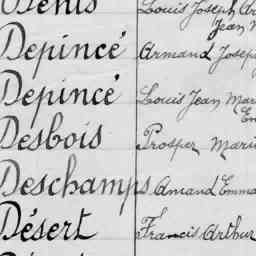 Denis Louis Joseph
Jean
Depincé Armand Joseph
Depincé Louis Jean
Desbois Prosper
Deschamps Amand
Désert Francis Arthur